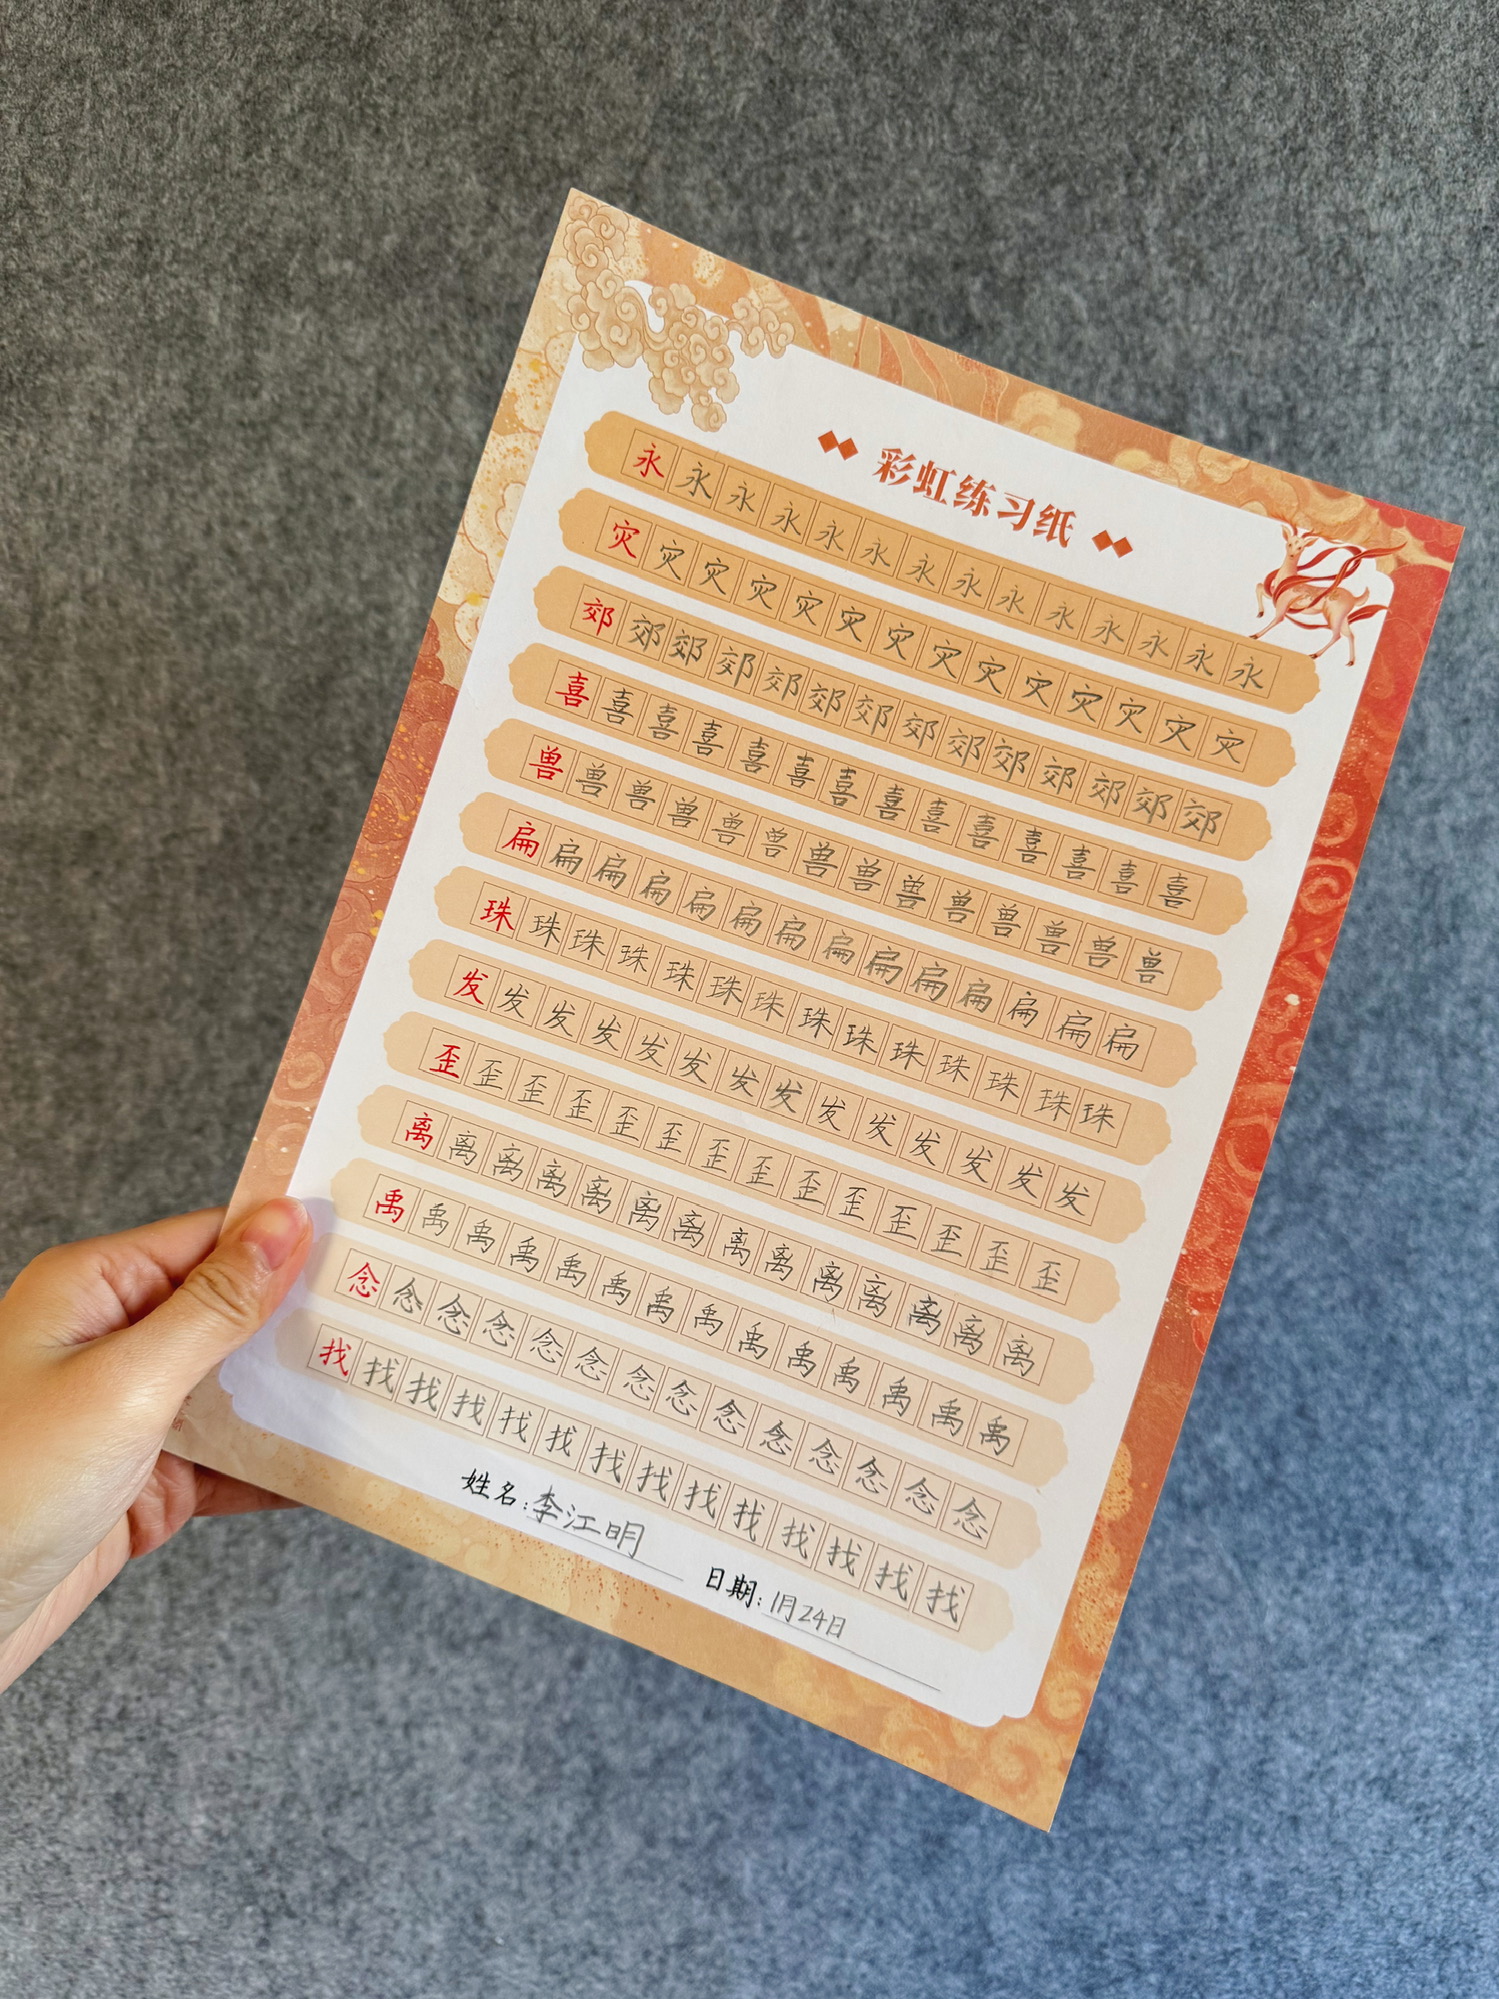 彩虹练习纸
永永永永永永永永永永永永永永
灾灾灾灾灾灾灾灾灾灾灾灾灾灾
郊郊郊郊郊郊郊郊郊郊郊郊郊郊
喜喜喜喜喜喜喜喜喜喜喜喜喜喜
兽兽兽兽兽兽兽兽兽兽兽兽兽兽
扁扁扁扁扁扁扁扁扁扁扁扁扁扁
珠珠珠珠珠珠珠珠珠珠珠珠珠珠
发发发发发发发发发发发发发发
歪歪歪歪歪歪歪歪歪歪歪歪歪歪
离离离离离离离离离离离离离离
禹禹禹禹禹禹禹禹禹禹禹禹禹禹
念念念念念念念念念念念念念念
找找找找找找找找找找找找找找
姓名:李江明 日期:1月24日